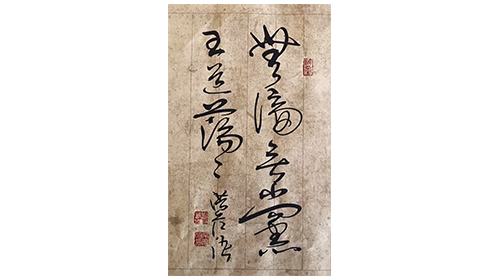 無偏無黨
王道蕩〻